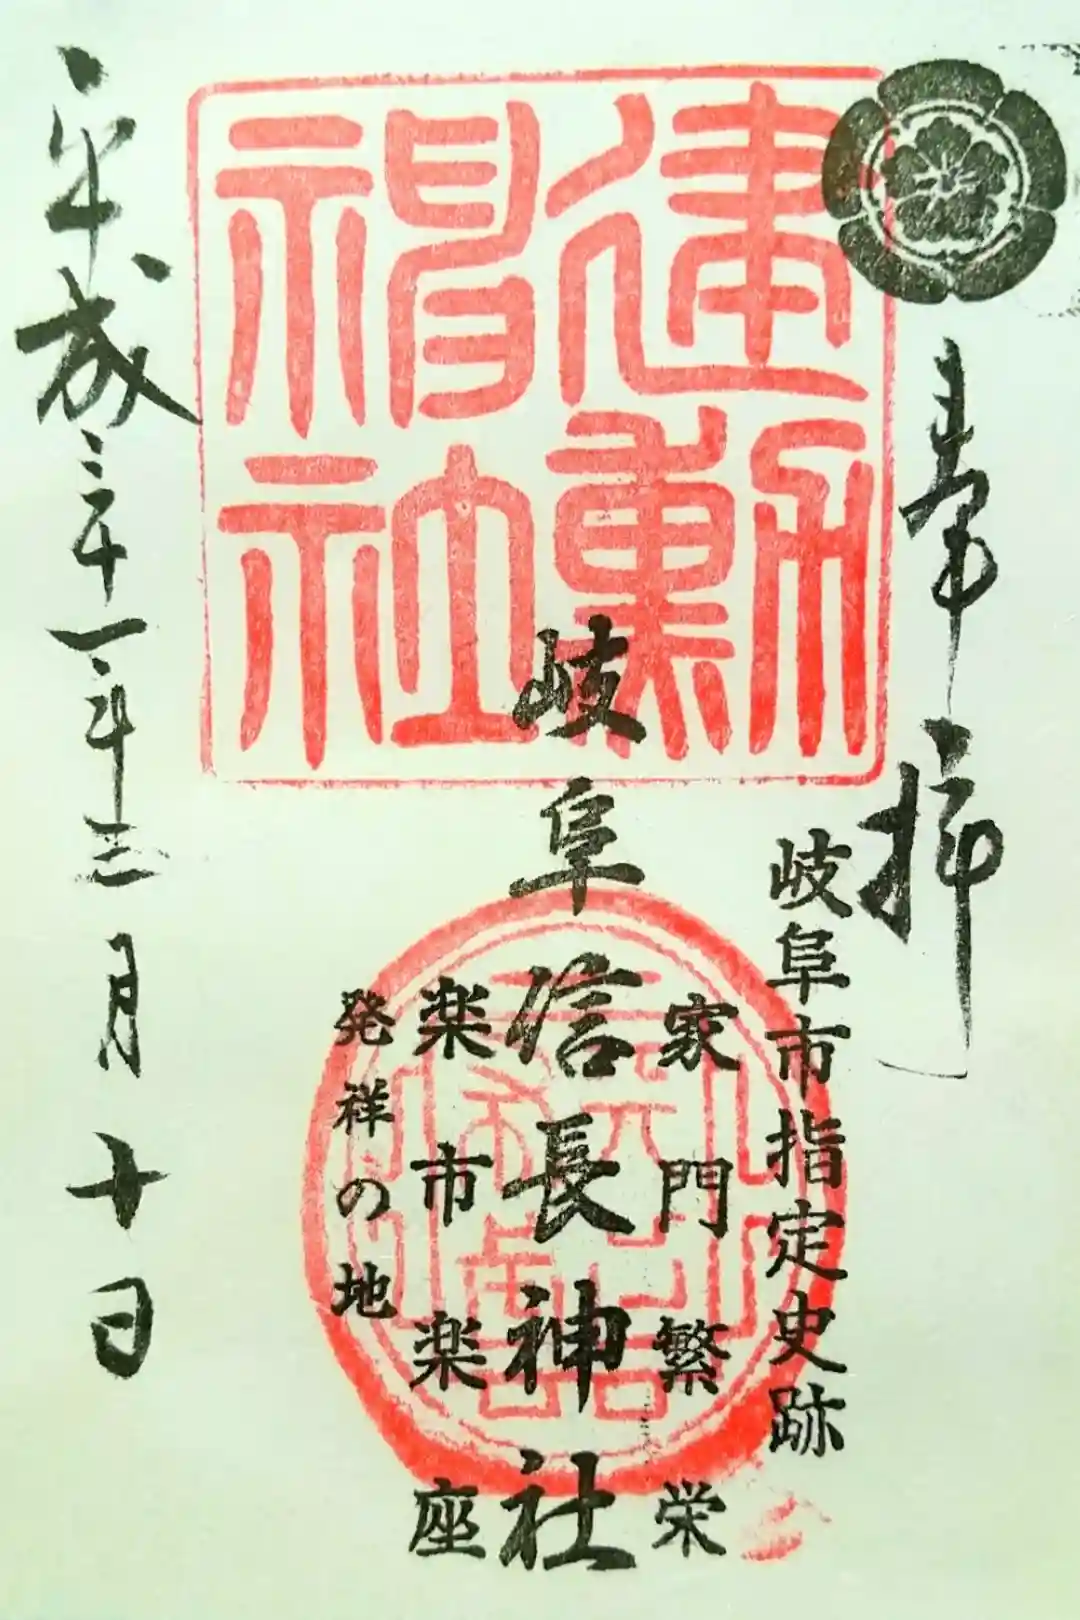 奉拝
岐阜市指定史跡
建勲
神社
家門繁栄
岐阜信長神社
楽市楽座
発祥の地
平成三十一年三月十日